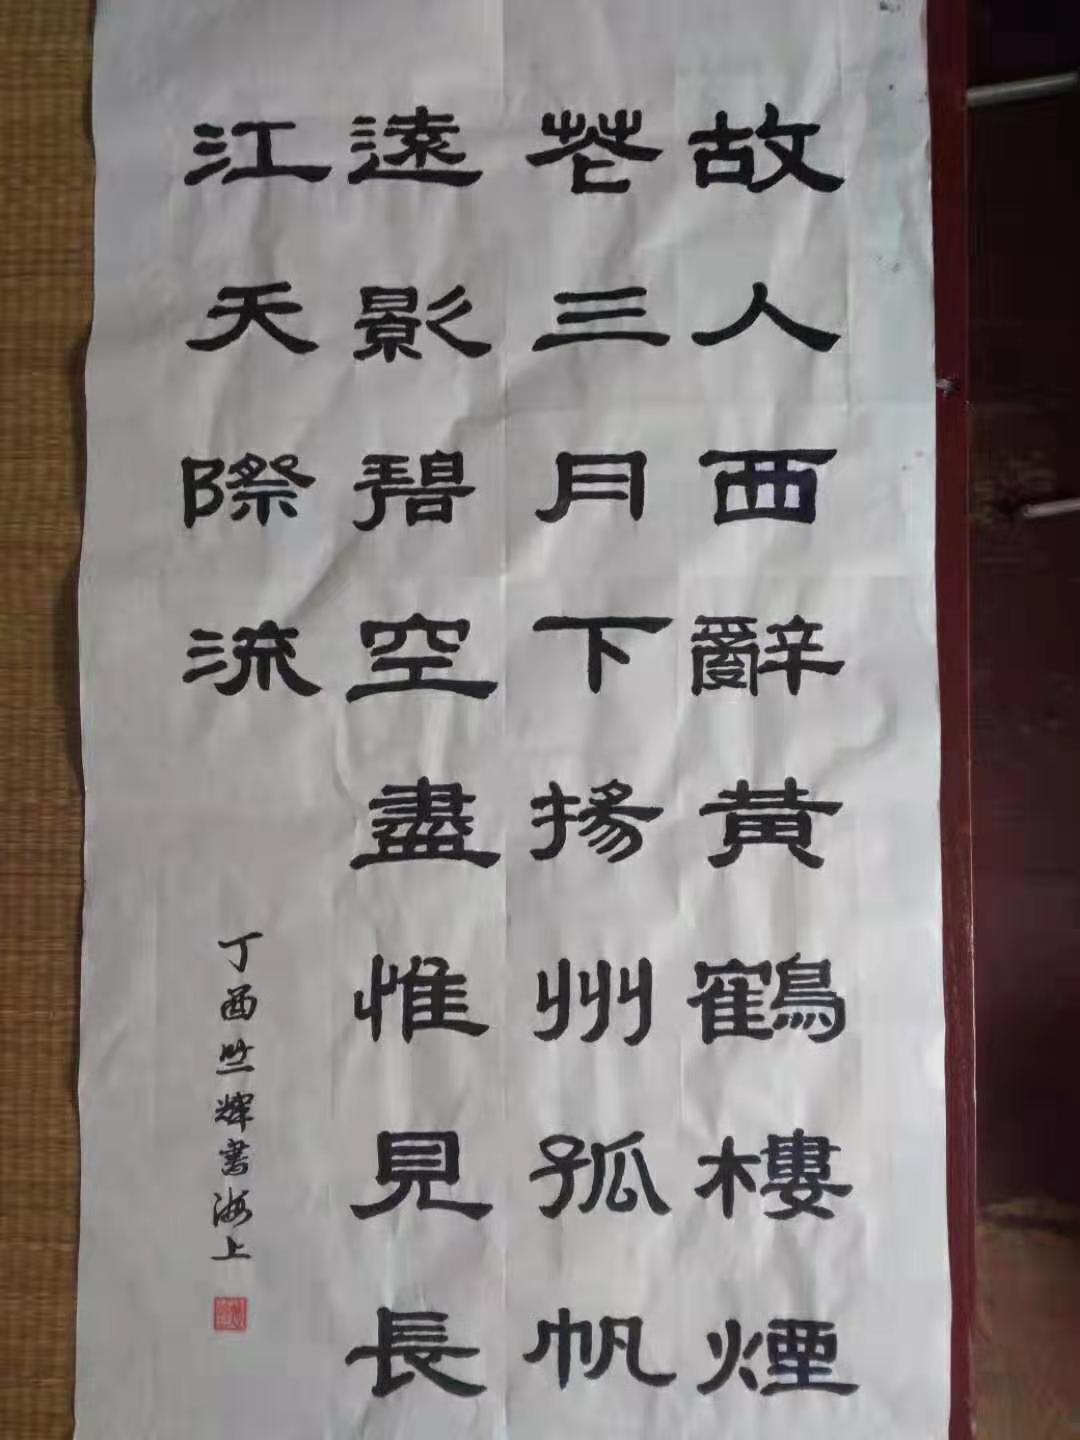 故人西辭黄鶴樓煙
花三月下揚州孤帆
遠影碧空盡惟見長
江天際流
丁酉竺輝書海上